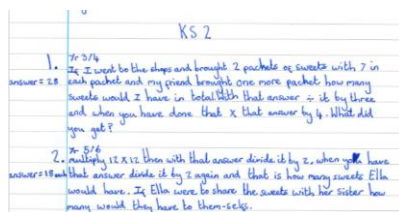 KS 2
1. Yr 3/4
If I went to the shops and brought 2 packets of sweets with 7 in
answer = 28 each packet and my friend brought one more packet how many
sweets would I have in total. With that answer ÷ it by three
and when you have done that x that answer by 4. What did
you get?
2. Yr 5/6
multiply 12 x 12 then with that answer divide it by 2, when you have
answer = 18 each that answer divide it by 2 again and that is how many sweets Ella
would have. If Ella were to share the sweets with her sister how
many would they have to them-selfs.